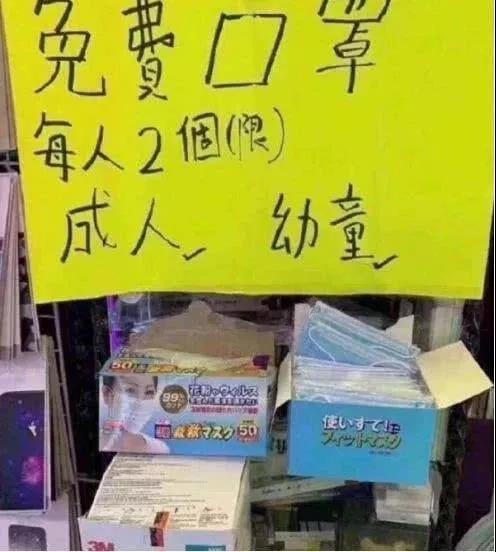 免費口罩
每人2個(限)
成人✓ 幼童✓
50
99%
カット
花粉やウィルス
殺菌マスク
50
使いすて!
フィットマスク
3M